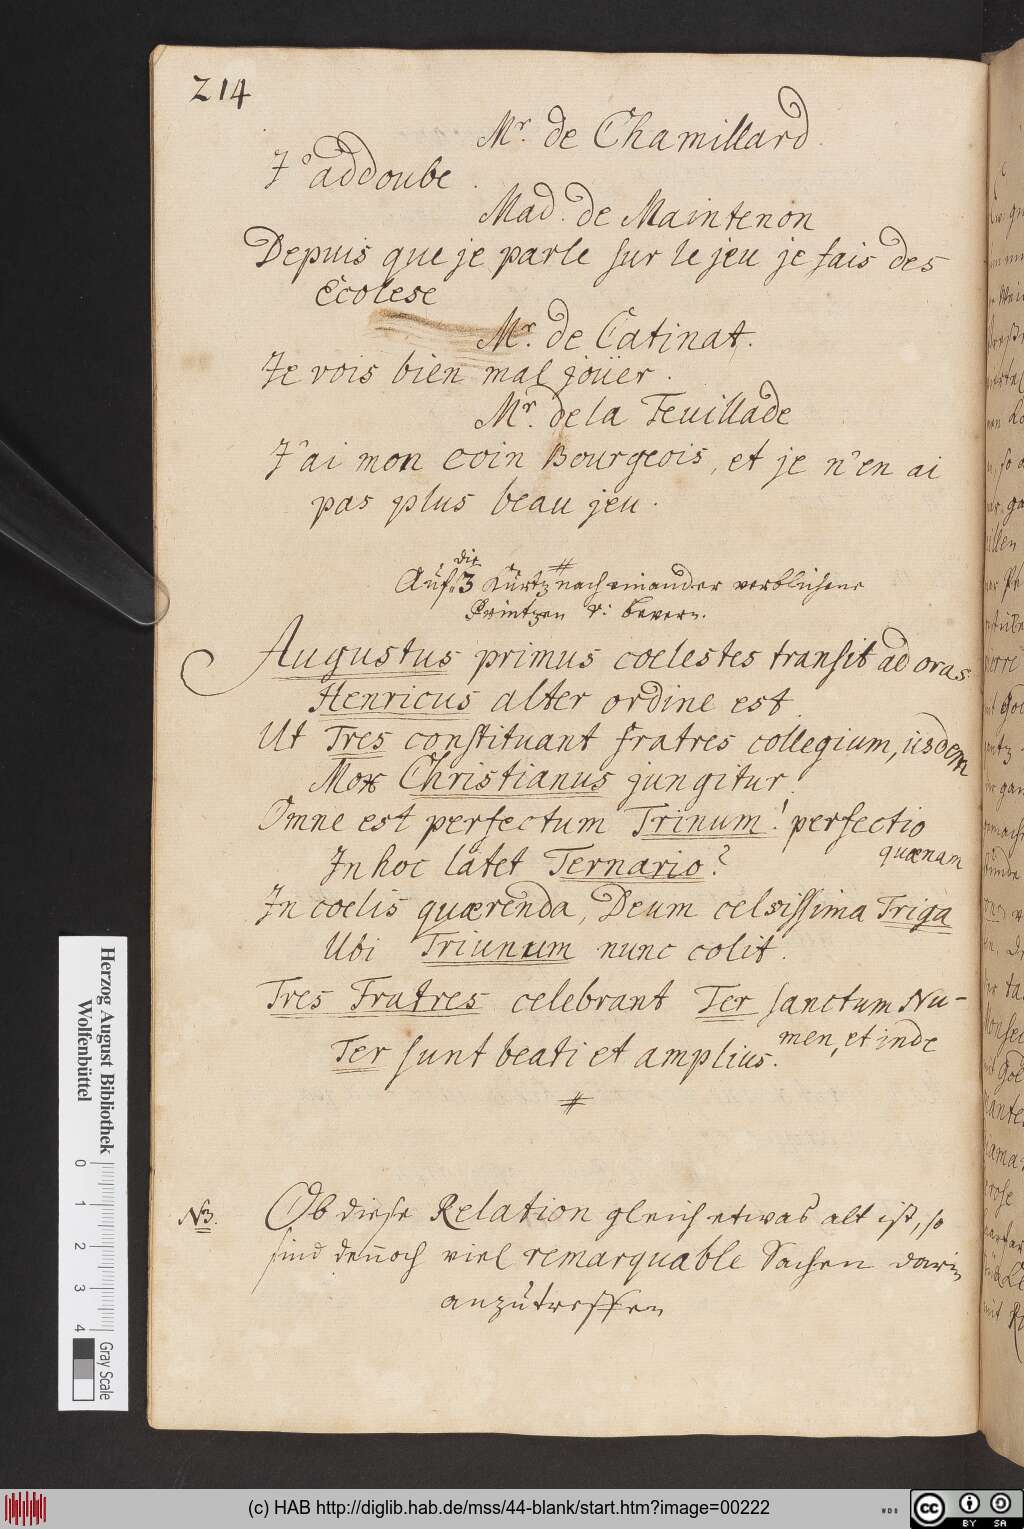 214
Mr. de Chamillard.
J'addoube.
Mad. de Maintenon
Depuis que je parle sur le jeu je fais des
Ecolese
Mr. de Catinat.
Je vois bien mal joüer.
Mr. de la Feuillade
J'ai mon coin Bourgeois, et je n'en ai
pas plus beau jeu.
die
Auf 3 kurtz nach einander verblichene
Printzen v: Bevern.
Augustus primus coelestes transit ad oras
Henricus alter ordine est.
Ut Tres constituant fratres collegium, iisdem
Mox Christianus jungitur.
Omne est perfectum Trinum! perfectio
quænam
In hoc latet Ternario?
In coelis quærenda, Deum celsissima Triga
Ubi Triunum nunc colit.
Tres Fratres celebrant Ter sanctum Nu-
men, et inde
Ter sunt beati et amplius.
NB.
Ob diese Relation gleich etwas alt ist, so
sind deñoch viel remarquable Sachen darin
anzutreffen
Herzog August Bibliothek
Wolfenbüttel
0 1 2 3 4
Gray Scale
(c) HAB http://diglib.hab.de/mss/44-blank/start.htm?image=00222
WDB
cc BY SA